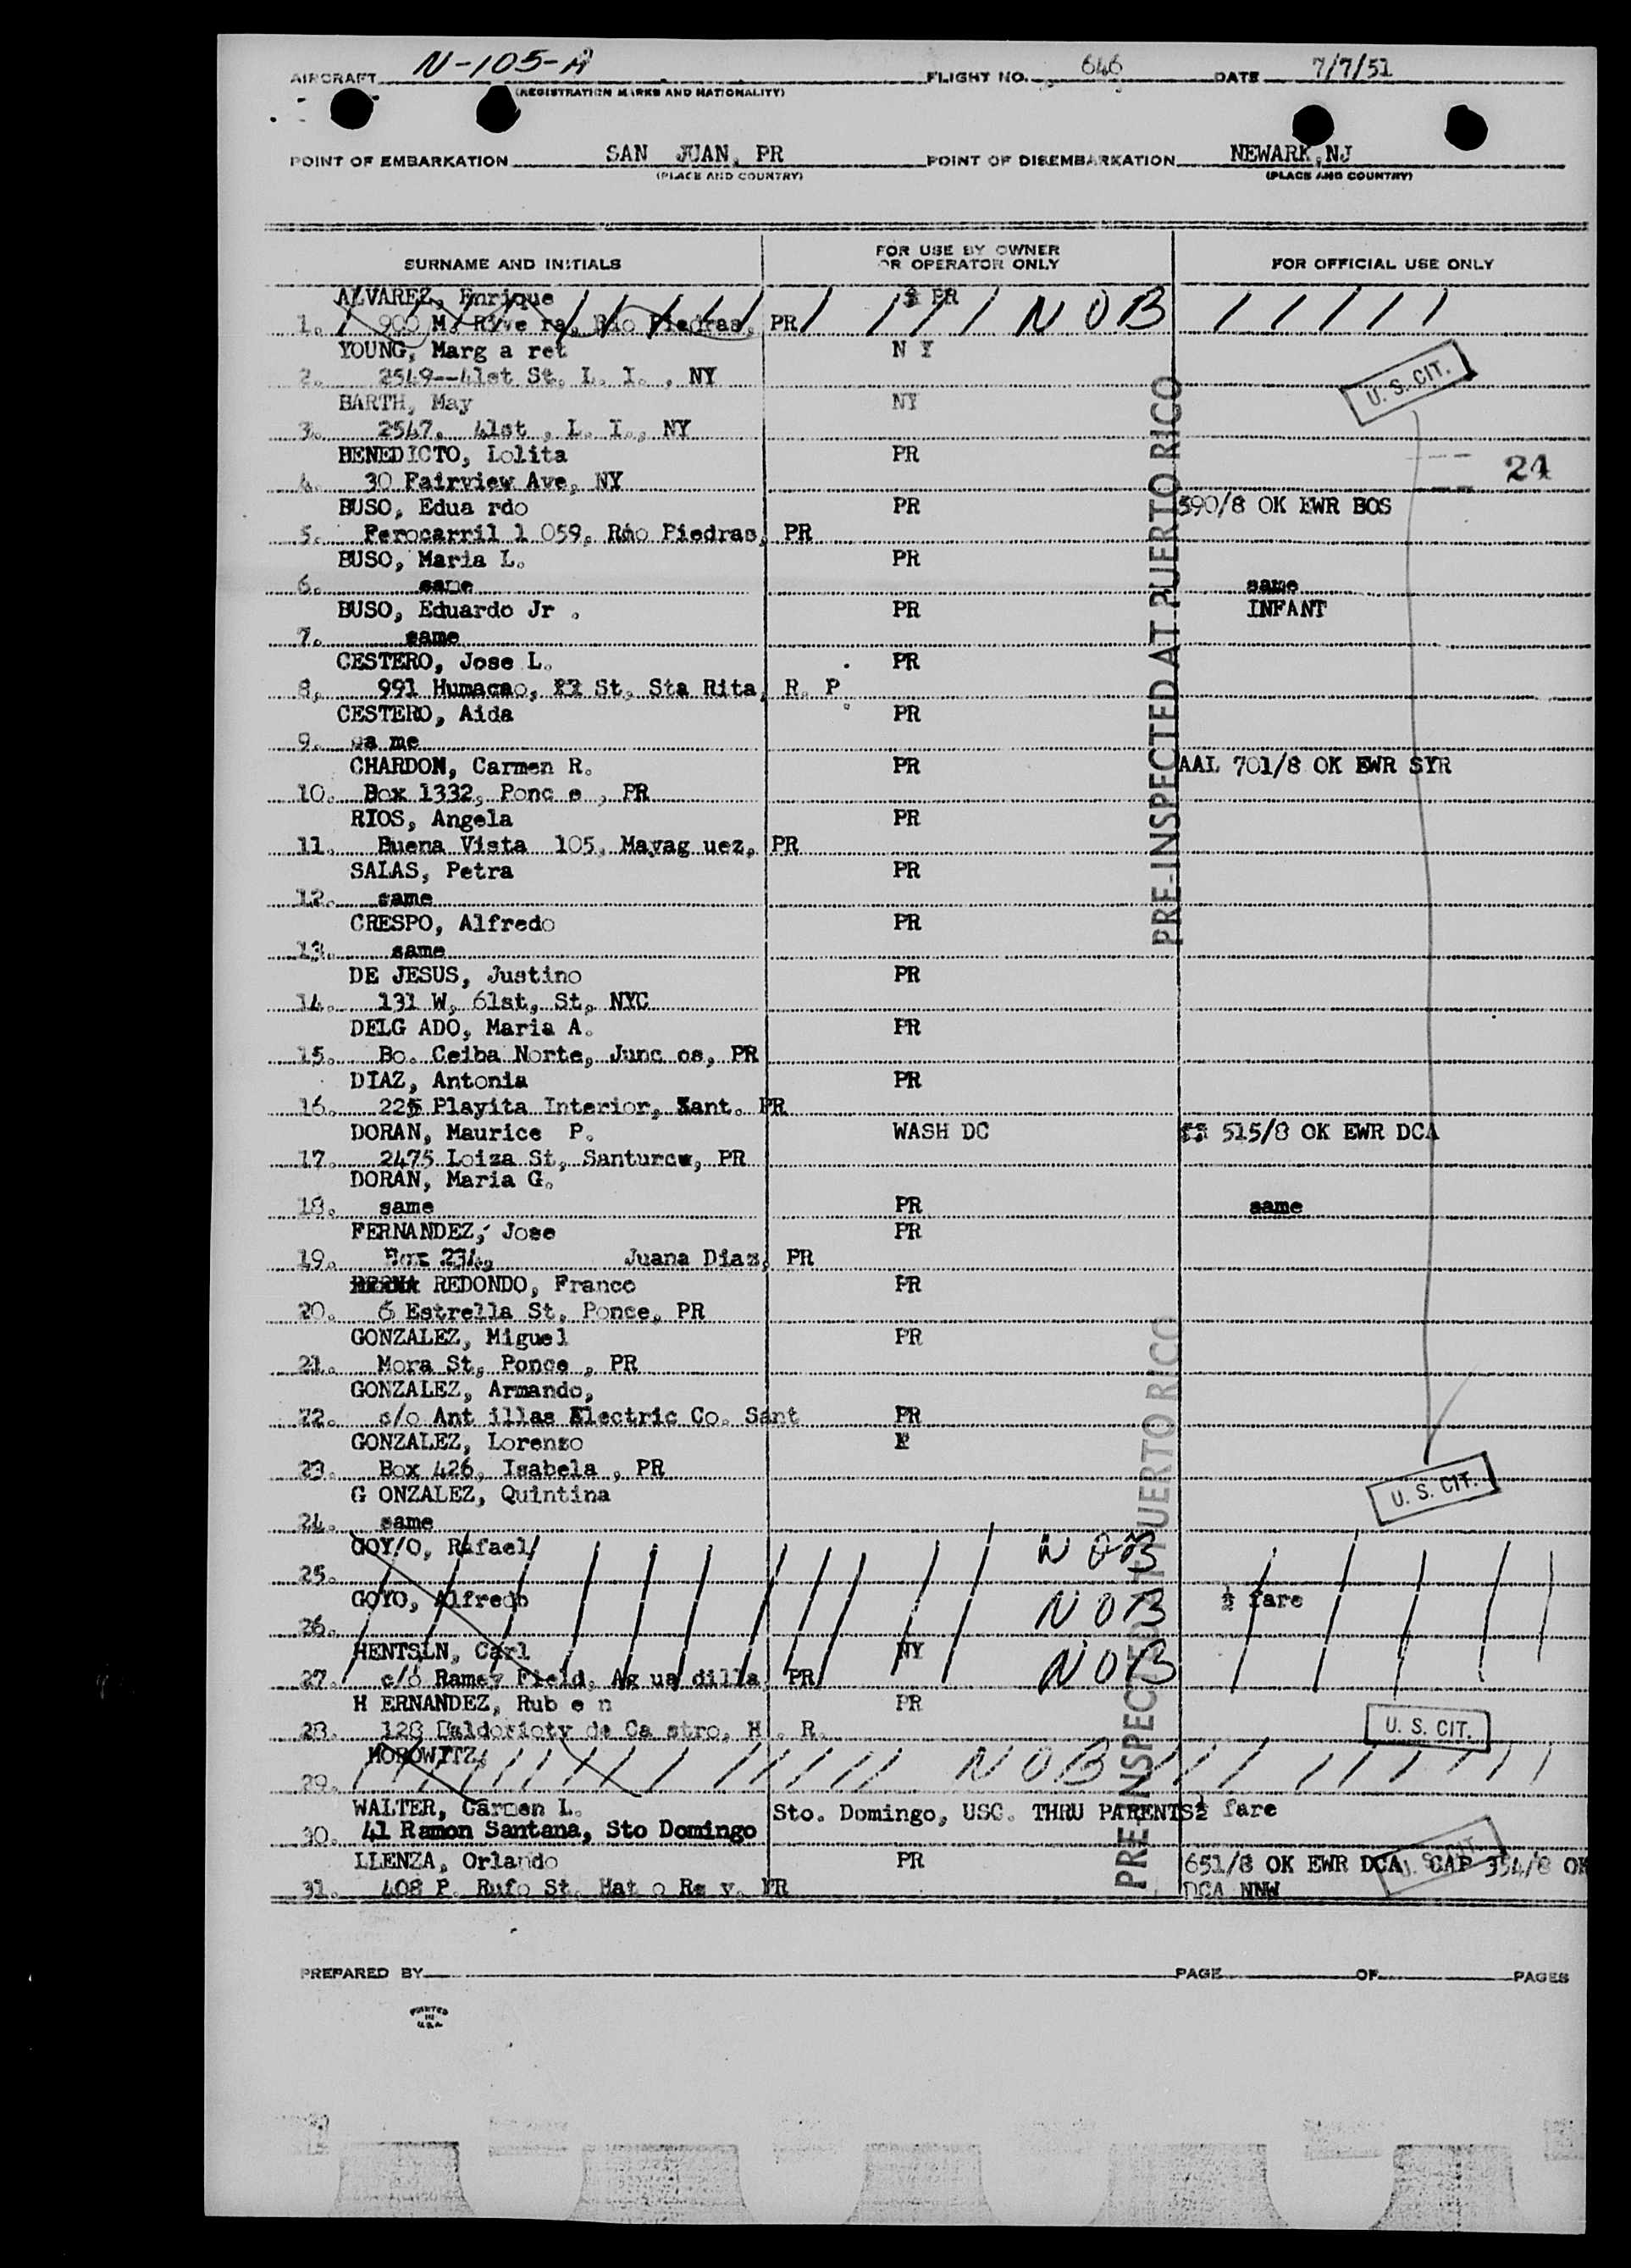 AIRCRAFT N-105-A FLIGHT NO. 646 DATE 7/7/51
(REGISTRATION MARKS AND NATIONALITY)
POINT OF EMBARKATION SAN JUAN, PR POINT OF DISEMBARKATION NEWARK,NJ
(PLACE AND COUNTRY) (PLACE AND COUNTRY)
SURNAME AND INITIALS FOR USE BY OWNER OR OPERATOR ONLY FOR OFFICIAL USE ONLY
ALVAREZ, Enrique ½ PR
1. 900 M. Rive ra, Rio Piedras, PR N O B
YOUNG, Marg a ret N Y
2. 2549--41st St. L. I. , NY U. S. CIT.
BARTH, May NY
3. 2547, 41st , L. I., NY
BENEDICTO, Lolita PR
4. 30 Fairview Ave, NY 24
BUSO, Edua rdo PR 590/8 OK EWR BOS
5. Ferocarril 1 059, Rio Piedras, PR
BUSO, Maria L. PR
6. same same
BUSO, Eduardo Jr . PR INFANT
7. same
CESTERO, Jose L. PR
8. 991 Humacao, St. Sta Rita, R. P.
CESTERO, Aida PR
9. sa me
CHARDON, Carmen R. PR AAL 701/8 OK EWR SYR
10. Box 1332, Ponc e , PR
RIOS, Angela PR
11. Buena Vista 105, Mayag uez, PR
SALAS, Petra PR
12. same
CRESPO, Alfredo PR
13. same
DE JESUS, Justino PR
14. 131 W, 61st, St, NYC
DELG ADO, Maria A. PR
15. Bo. Ceiba Norte, Junc os, PR
DIAZ, Antonia PR
16. 225 Playita Interior, Sant. PR
DORAN, Maurice P. WASH DC 515/8 OK EWR DCA
17. 2475 Loiza St, Santurce, PR
DORAN, Maria G.
18. same PR same
FERNANDEZ, Jose PR
19. Box 234, Juana Diaz, PR
REDONDO, Franco PR
20. 6 Estrella St, Ponce, PR
GONZALEZ, Miguel PR
21. Mora St, Ponce , PR
GONZALEZ, Armando,
22. c/o Ant illas Electric Co. Sant PR
GONZALEZ, Lorenzo
23. Box 426, Isabela , PR
G ONZALEZ, Quintina U. S. CIT.
24. same
GOY/O, Rafael N O B
25.
GOYO, Alfredo N O B ½ fare
26.
HENTSLN, Carl NY
27. c/o Ramey Field, Ag ua dilla, PR N O B
H ERNANDEZ, Rub e n PR
28. 128 Baldorioty de Ca stro, H . R. U. S. CIT.
HOROWITZ, N O B
29.
WALTER, Carmen L. Sto. Domingo, USC. THRU PARENTS ½ fare
30. 41 Ramon Santana, Sto Domingo
LLENZA, Orlando PR 651/8 OK EWR DCA CAP 354/8 OK
U. S. CIT.
31. 408 P. Rufo St. Hat o Re y. PR DCA NNW
PRE-INSPECTED AT PUERTO RICO
PRE-INSPECTED AT PUERTO RICO
PREPARED BY PAGE OF PAGES
PRINTED
IN
U.S.A.